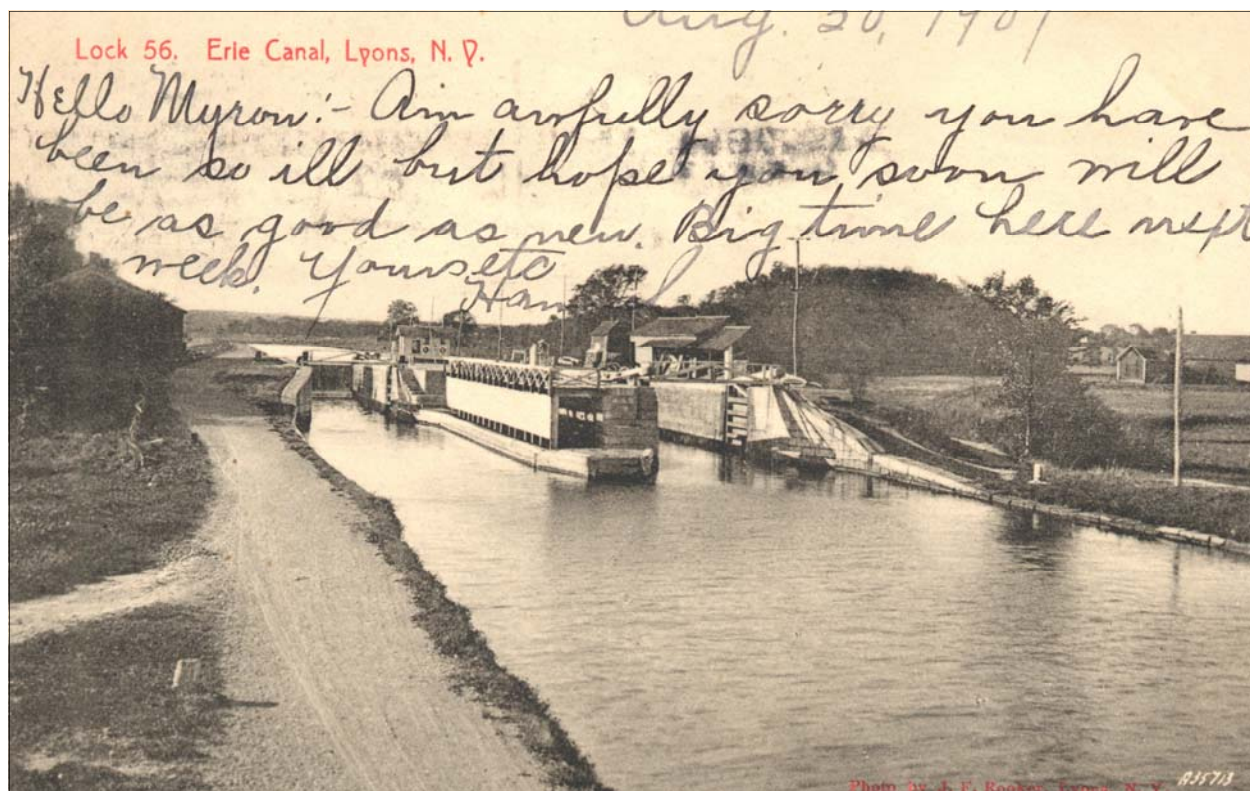 Aug. 20, 1907
Lock 56. Erie Canal, Lyons, N. Y.
Hello Myron:- Am awfully sorry you have
been so ill but hope you soon will
be as good as new. Big time here next
week. Yours etc
Photo by J. F. Rooker, Lyons, N. Y.
A35713